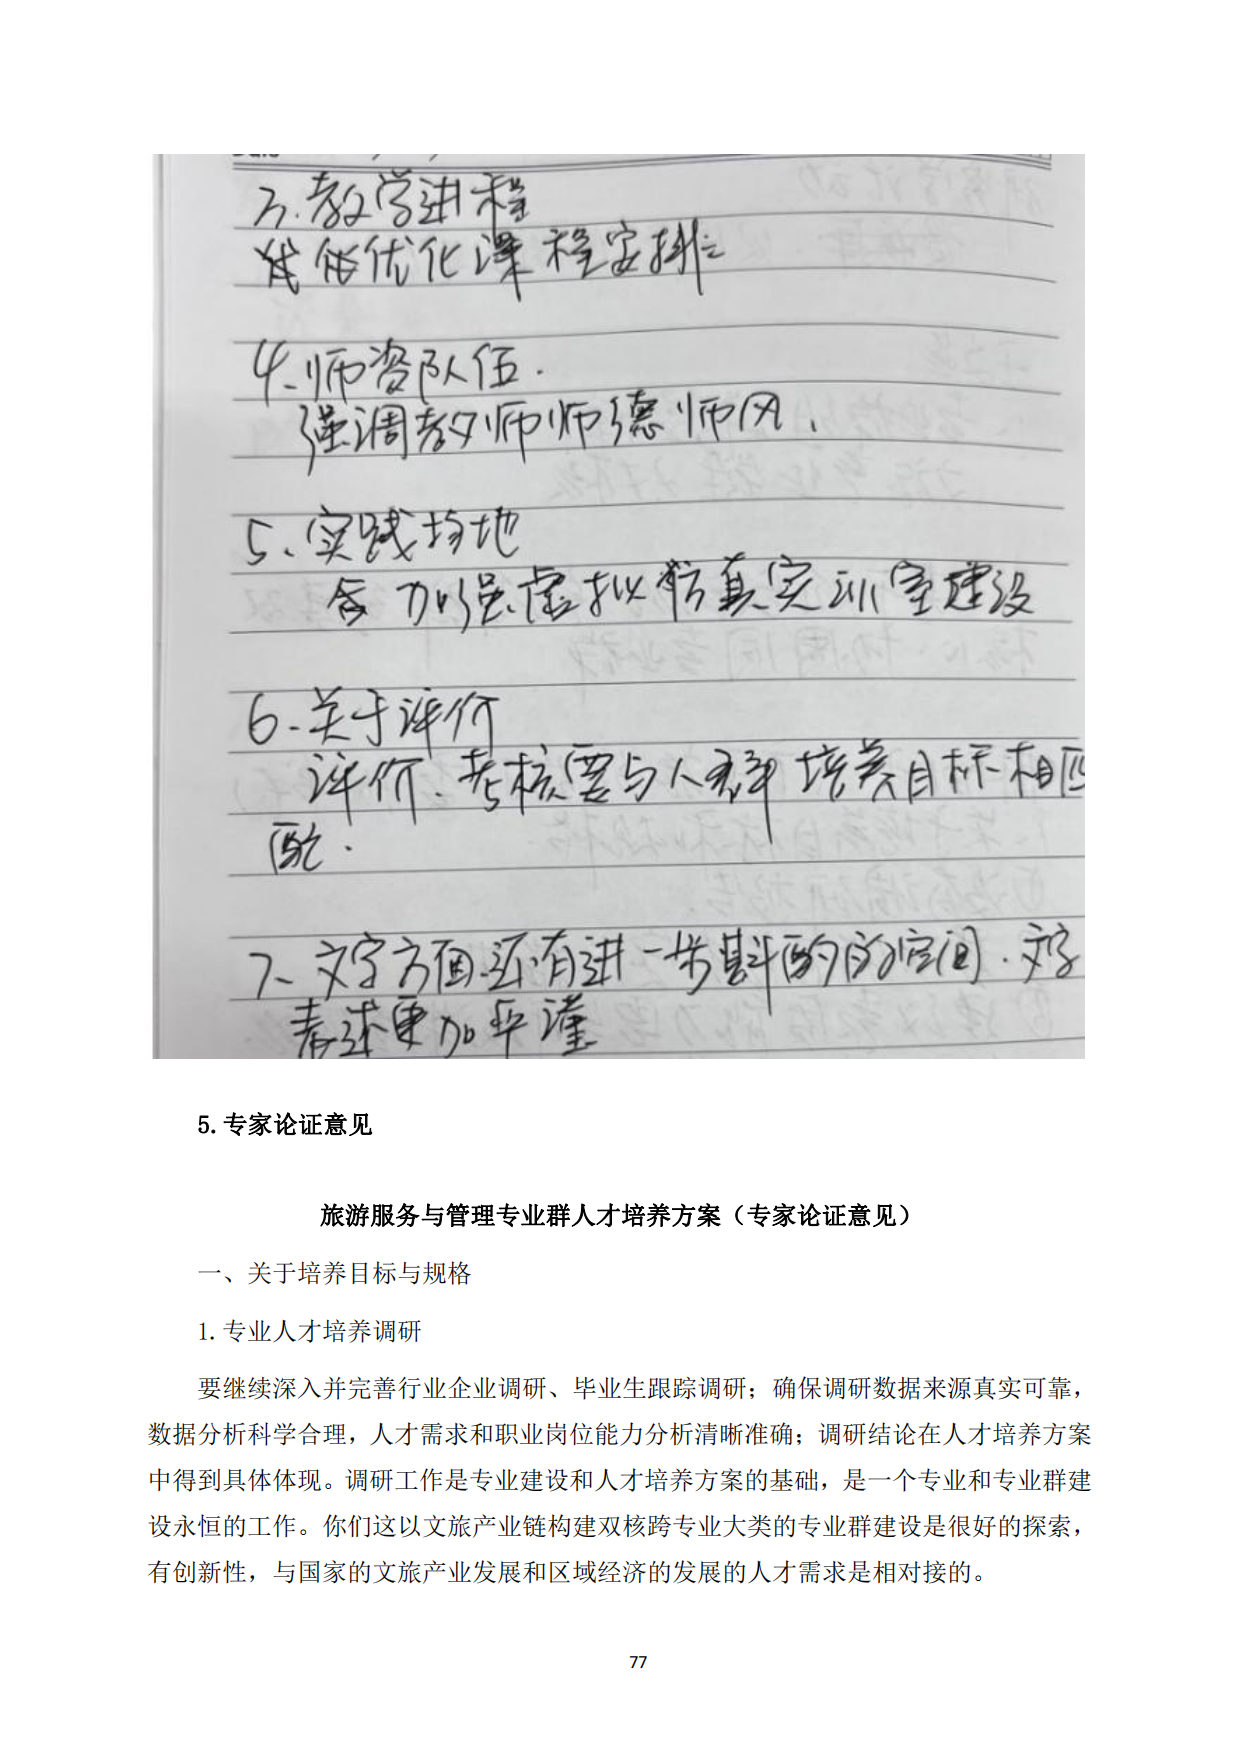 3.教学进程
优化课程安排
4.师资队伍.
强调教师师德师风.
5.实践场地
加强虚拟仿真实训室建设
6.关于评价
评价.考核要与人才培养目标相匹
配.
7.文字方面还有进一步斟酌的空间.文字
表述更加严谨
5.专家论证意见
旅游服务与管理专业群人才培养方案（专家论证意见）
一、关于培养目标与规格
1.专业人才培养调研
要继续深入并完善行业企业调研、毕业生跟踪调研；确保调研数据来源真实可靠，
数据分析科学合理，人才需求和职业岗位能力分析清晰准确；调研结论在人才培养方案
中得到具体体现。调研工作是专业建设和人才培养方案的基础，是一个专业和专业群建
设永恒的工作。你们这以文旅产业链构建双核跨专业大类的专业群建设是很好的探索，
有创新性，与国家的文旅产业发展和区域经济的发展的人才需求是相对接的。
77